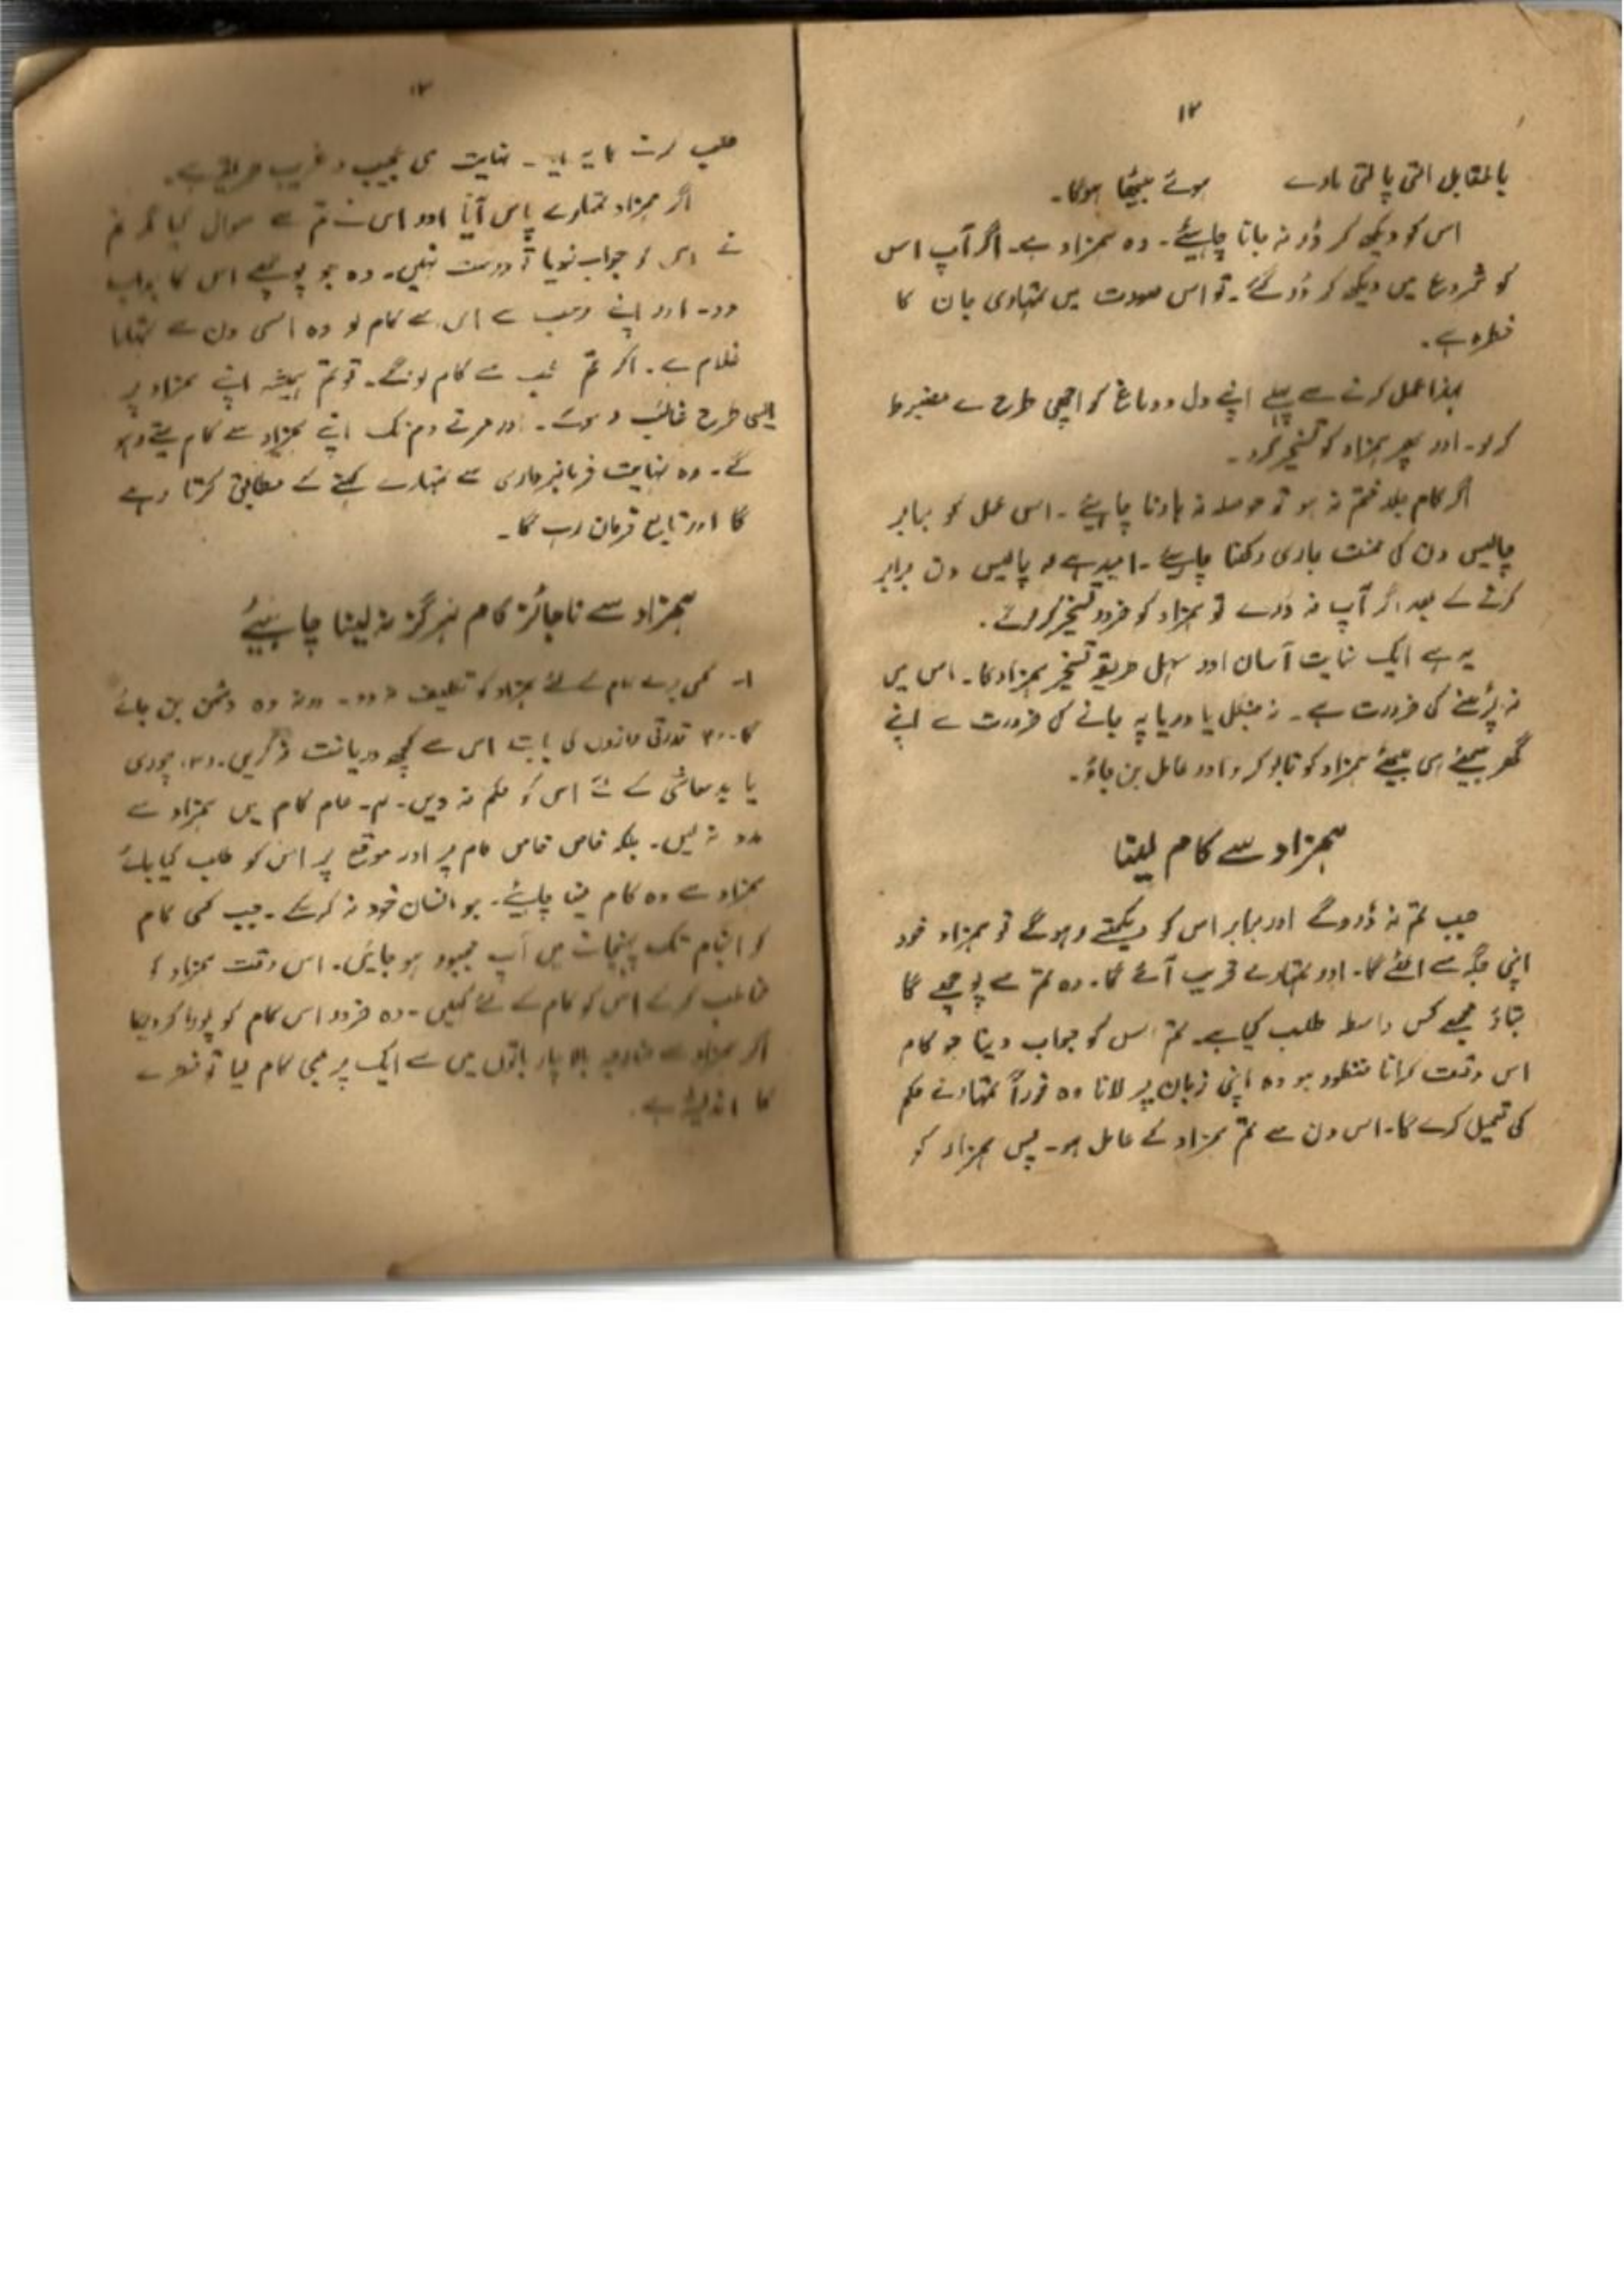 ۱۲
بالمقابل التی پالتی مارے ہوئے بیٹھا ہوگا۔
اس کو دیکھ کر ڈر نہ جانا چاہیئے۔ وہ ہمزاد ہے۔ اگر آپ اس
کو شروع میں دیکھ کر ڈر گئے۔ تو اس صورت میں تمہاری جان کا
خطرہ ہے۔
لہذا عمل کرنے سے پہلے اپنے دل و دماغ کو اچھی طرح سے مضبوط
کر لو۔ اور پھر ہمزاد کو تسخیر کرو۔
اگر کام جلد ختم نہ ہو تو حوصلہ نہ ہارنا چاہیئے۔ اس عمل کو برابر
چالیس دن کی محنت جاری رکھنا چاہیے۔ امید ہے کہ چالیس دن برابر
کرنے کے بعد اگر آپ نہ ڈرے تو ہمزاد کو ضرور تسخیر کر لوگے۔
یہ ہے ایک نہایت آسان اور سہل طریقہ تسخیر ہمزاد کا۔ اس میں
نہ پڑھنے کی ضرورت ہے۔ نہ جنگل یا دریا پہ جانے کی ضرورت ہے اپنے
گھر بیٹھے ہی بیٹھے ہمزاد کو قابو کرو اور عامل بن جاؤ۔
ہمزاد سے کام لینا
جب تم نہ ڈروگے اور برابر اس کو دیکھتے رہوگے تو ہمزاد خود
اپنی جگہ سے اٹھے گا۔ اور تمہارے قریب آئے گا۔ وہ تم سے پوچھے گا
بتاؤ مجھے کس واسطہ طلب کیا ہے۔ تم اس کو جواب دینا جو کام
اس وقت کرانا منظور ہو وہ اپنی زبان پر لانا وہ فوراً تمہارے حکم
کی تعمیل کرے گا۔ اس دن سے تم ہمزاد کے عامل ہو۔ پس ہمزاد کو
طلب کرنے کا یہ نہایت ہی عجیب و غریب طریقہ ہے۔
اگر ہمزاد تمہارے پاس آیا اور اس نے تم سے سوال کیا مگر تم
نے اس کو جواب نہ دیا تو درست نہیں۔ وہ جو پوچھے اس کا جواب
دو۔ اور اپنے سے اس سے کام لو وہ اسی دن سے تمہارا
غلام ہے۔ اگر تم سے کام لوگے۔ تو تم ہمیشہ اپنے ہمزاد پر
اسی طرح غالب اور مرتے دم تک اپنے ہمزاد سے کام لیتے رہو
گے۔ وہ نہایت فرمانبرداری سے تمہارے کہنے کے مطابق کرتا رہے
گا اور تابع فرمان رہے گا۔
ہمزاد سے ناجائز کام ہرگز نہ لینا چاہیئے
۱۔ کسی برے کام کے لئے ہمزاد کو تکلیف نہ دو۔ ورنہ وہ دشمن بن جائے
گا۔ ۲۔ قدرتی رازوں کی بابت اس سے کچھ دریافت نہ کریں۔ ۳۔ چوری
یا بدمعاشی کے لئے اس کو حکم نہ دیں۔ ۴۔ عام کام میں ہمزاد سے
مدد نہ لیں۔ بلکہ خاص خاص کام پر اور موقع پر اس کو طلب کیا جائے
ہمزاد سے وہ کام لینا چاہیئے۔ جو انسان خود نہ کرسکے۔ جب کسی کام
کو انجام تک پہنچانے میں آپ مجبور ہو جائیں۔ اس وقت ہمزاد کو
مخاطب کرکے اس کو کام کے لئے کہیں۔ وہ ضرور اس کام کو پورا کردیگا
اگر ہمزاد سے مندرجہ بالا چار باتوں میں سے ایک پر بھی کام لیا تو خطرے
کا اندیشہ ہے۔